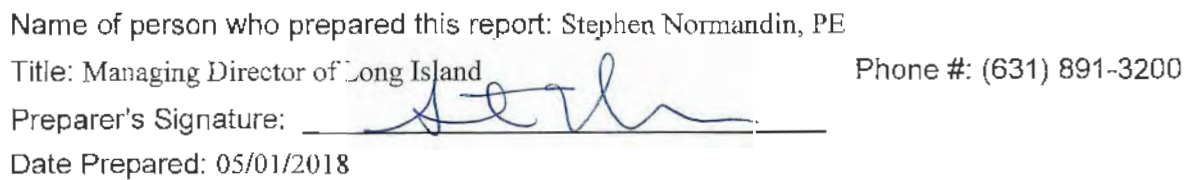 Name of person who prepared this report: Stephen Normandin, PE
Title: Managing Director of Long Island Phone #: (631) 891-3200
Preparer's Signature:
Date Prepared: 05/01/2018